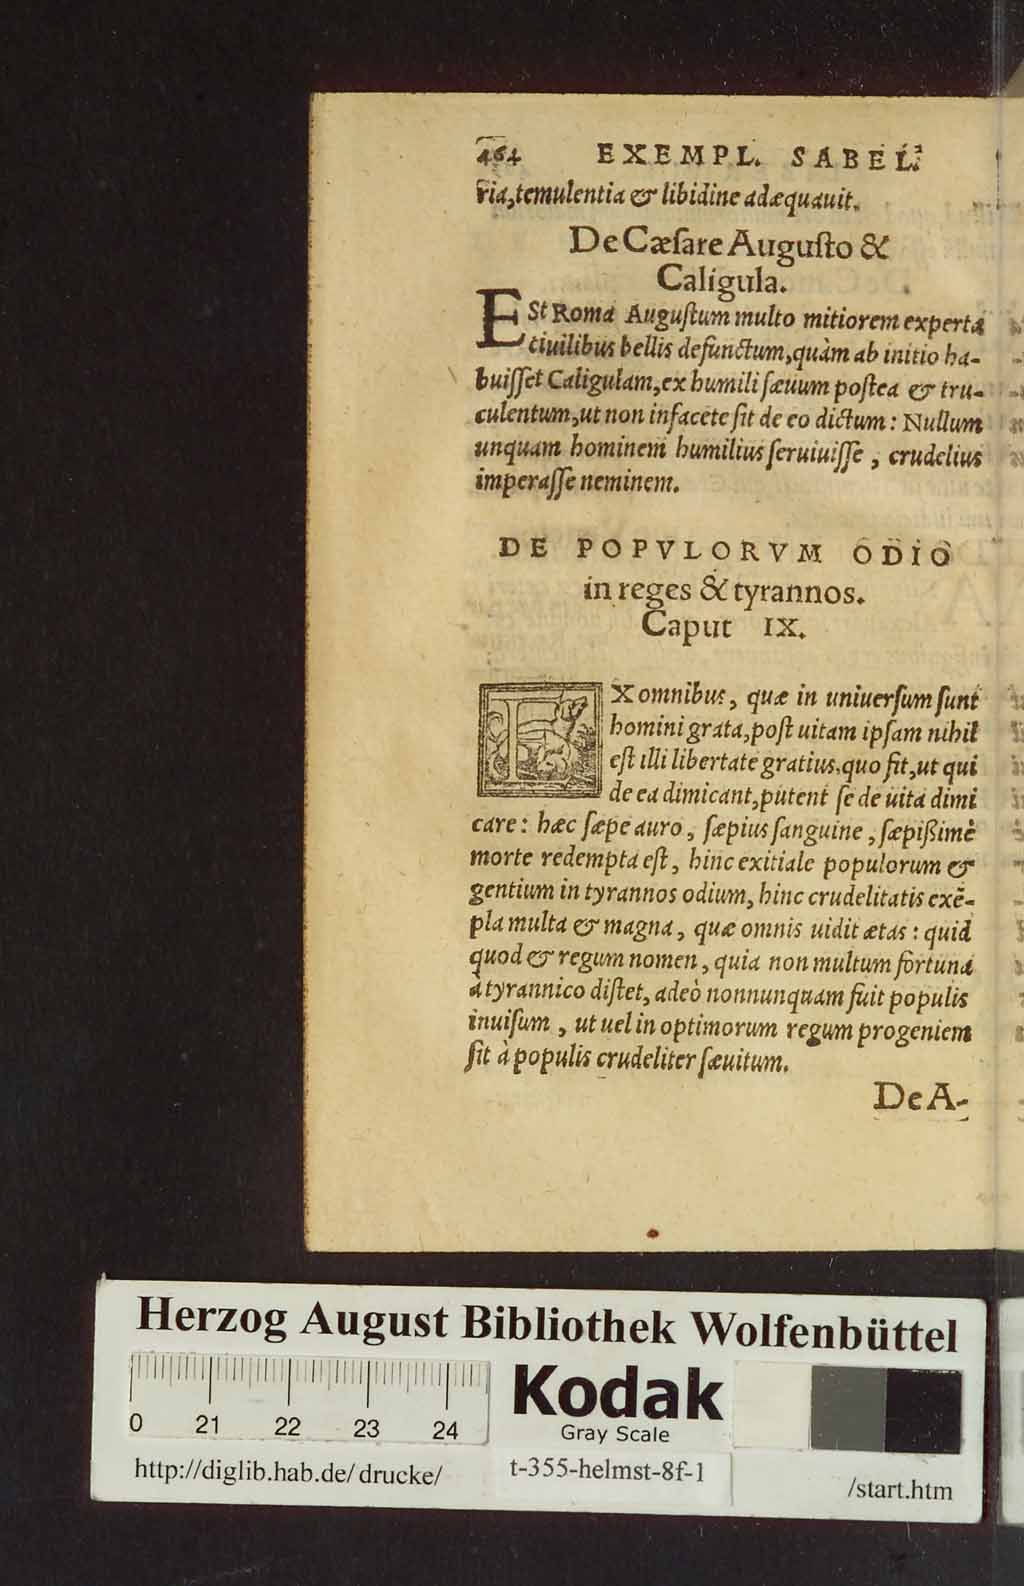 464 EXEMPL. SABEL.
ria, temulentia & libidine adæquauit.
De Cæſare Auguſto &
Caligula.
ESt Roma Auguſtum multo mitiorem experta
ciuilibus bellis defunctum, quàm ab initio ha-
buiſſet Caligulam, ex humili ſæuum poſtea & tru-
culentum, ut non infacete ſit de eo dictum: Nullum
unquam hominem humilius ſeruiuiſſe, crudelius
imperaſſe neminem.
DE POPVLORVM ODIO
in reges & tyrannos.
Caput IX.
EX omnibus, quæ in uniuerſum ſunt
homini grata, poſt uitam ipſam nihil
eſt illi libertate gratius, quo fit, ut qui
de ea dimicant, putent ſe de uita dimi
care: hæc ſæpe auro, ſæpius ſanguine, ſæpißimè
morte redempta eſt, hinc exitiale populorum &
gentium in tyrannos odium, hinc crudelitatis exẽ-
pla multa & magna, quæ omnis uidit ætas: quid
quod & regum nomen, quia non multum fortuna
à tyrannico diſtet, adeò nonnunquam fuit populis
inuiſum, ut uel in optimorum regum progeniem
ſit à populis crudeliter ſæuitum.
De A-
Herzog August Bibliothek Wolfenbüttel
0 21 22 23 24
Kodak
Gray Scale
http://diglib.hab.de/drucke/ t-355-helmst-8f-1 /start.htm